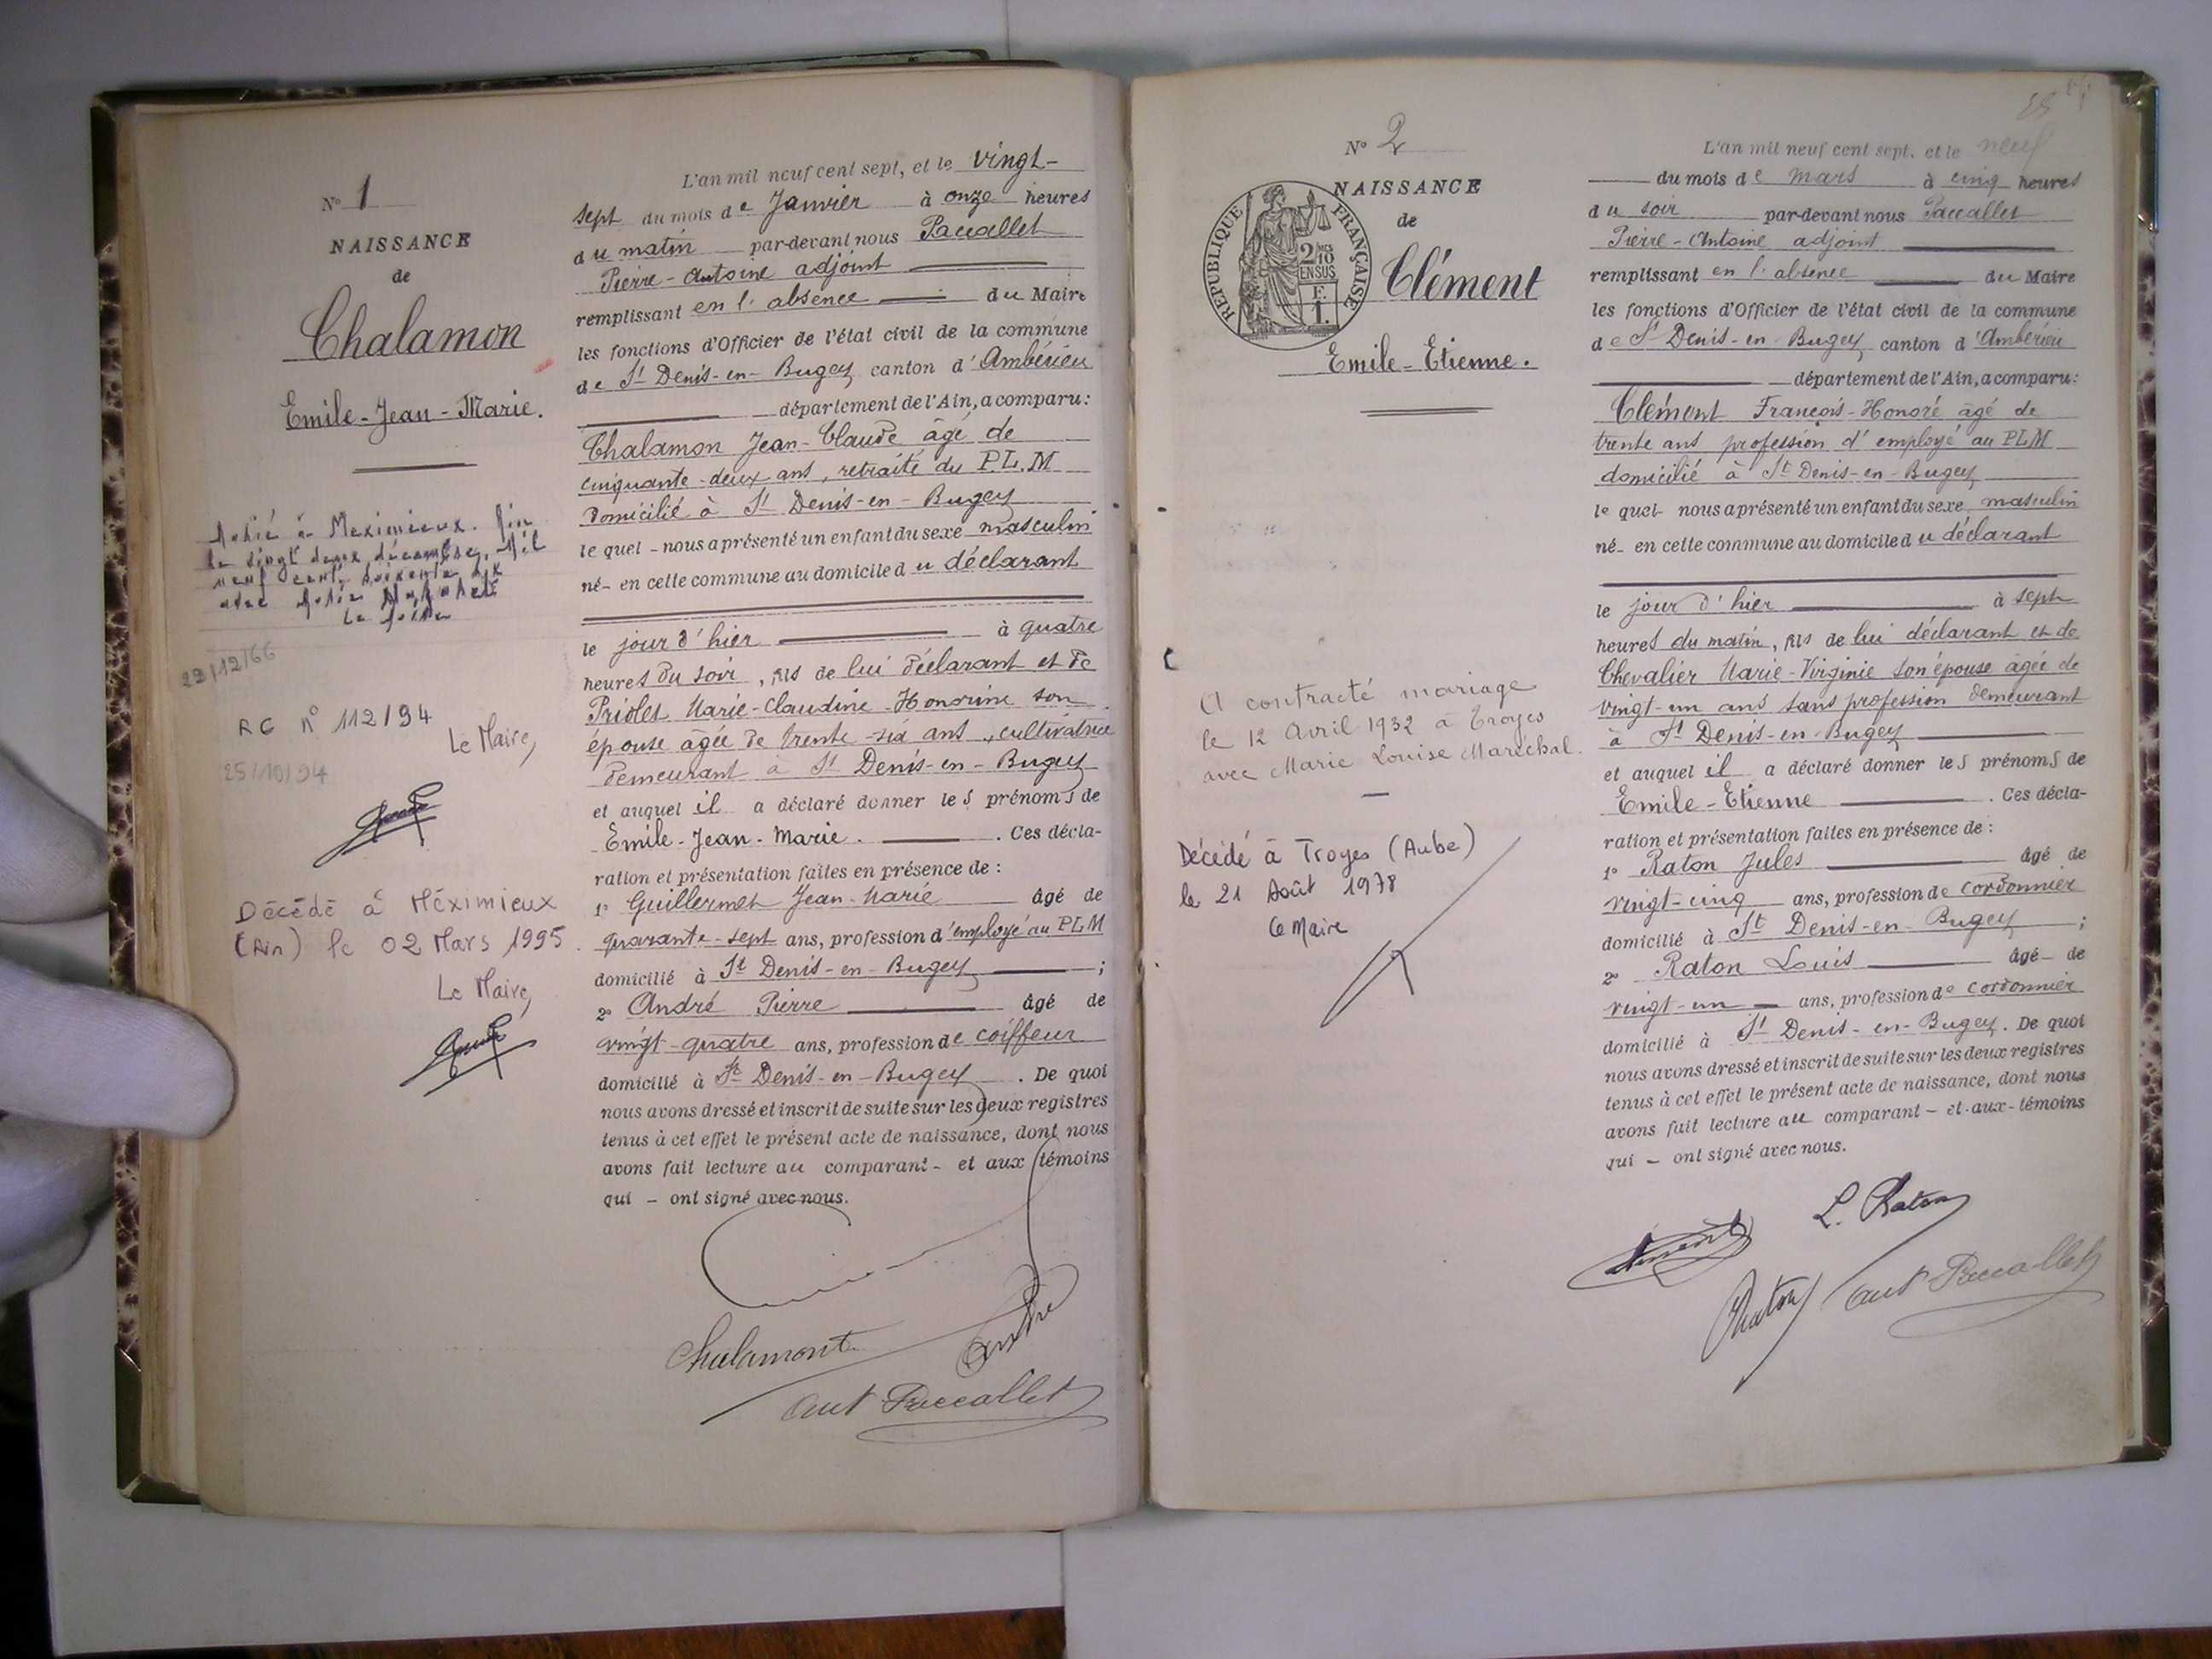 N° 1
NAISSANCE
de
Chalamon
Emile-Jean-Marie.
Marié à Meximieux. Ain
le vingt deux décembre, Mil
neuf cent soixante six
avec
Le Maire
29/12/66
RC N° 112/94
Le Maire,
25/10/94
Décédé à Méximieux
(Ain) le 02 Mars 1995.
Le Maire,
L'an mil neuf cent sept, et le vingt-
sept du mois de Janvier à onze heures
du matin par-devant nous Paccallet
Pierre-Antoine adjoint
remplissant en l'absence du Maire
les fonctions d'Officier de l'état civil de la commune
de St Denis-en-Bugey canton d'Ambérieu
département de l'Ain, a comparu:
Chalamon Jean-Claude âgé de
cinquante-deux ans, retraité du P.L.M
domicilié à St Denis-en-Bugey
lequel - nous a présenté un enfant du sexe masculin
né- en cette commune au domicile du déclarant
le jour d'hier à quatre
heures du soir, fils de lui déclarant et de
Priolet Marie-Claudine-Honorine son
épouse âgée de trente-six ans, cultivatrice
demeurant à St Denis-en-Bugey
et auquel il a déclaré donner les prénoms de
Emile-Jean-Marie. . Ces décla-
ration et présentation faites en présence de :
1° Guillermet Jean-Marie âgé de
quarante-sept ans, profession d'employé au PLM
domicilié à St Denis-en-Bugey ;
2° André Pierre âgé de
vingt-quatre ans, profession de coiffeur
domicilié à St Denis-en-Bugey . De quoi
nous avons dressé et inscrit de suite sur les deux registres
tenus à cet effet le présent acte de naissance, dont nous
avons fait lecture au comparant - et aux témoins
qui - ont signé avec nous.
Chalamont
André
Ant Paccallet
N° 2
NAISSANCE
de
Clément
Emile-Etienne.
REPUBLIQUE FRANÇAISE
2/10
EN SUS
F.
1.
A contracté mariage
le 12 Avril 1932 à Troyes
avec Marie Louise Maréchal.
Décédé à Troyes (Aube)
le 21 Août 1978
Le Maire
L'an mil neuf cent sept, et le neuf
du mois de mars à cinq heures
du soir par-devant nous Paccallet
Pierre-Antoine adjoint
remplissant en l'absence du Maire
les fonctions d'Officier de l'état civil de la commune
de St Denis-en-Bugey canton d'Ambérieu
département de l'Ain, a comparu:
Clément François-Honoré âgé de
trente ans profession d'employé au PLM
domicilié à St Denis-en-Bugey
lequel nous a présenté un enfant du sexe masculin
né- en cette commune au domicile du déclarant
le jour d'hier à sept
heures du matin, fils de lui déclarant et de
Chevalier Marie-Virginie son épouse âgée de
vingt-un ans sans profession demeurant
à St Denis-en-Bugey
et auquel il a déclaré donner les prénoms de
Emile-Etienne . Ces décla-
ration et présentation faites en présence de :
1° Raton Jules âgé de
vingt-cinq ans, profession de cordonnier
domicilié à St Denis-en-Bugey ;
2° Raton Louis âgé- de
vingt-un ans, profession de cordonnier
domicilié à St Denis-en-Bugey. De quoi
nous avons dressé et inscrit de suite sur les deux registres
tenus à cet effet le présent acte de naissance, dont nous
avons fait lecture au comparant - et-aux-témoins
qui - ont signé avec nous.
L. Raton
Clément
Raton
Ant Paccallet